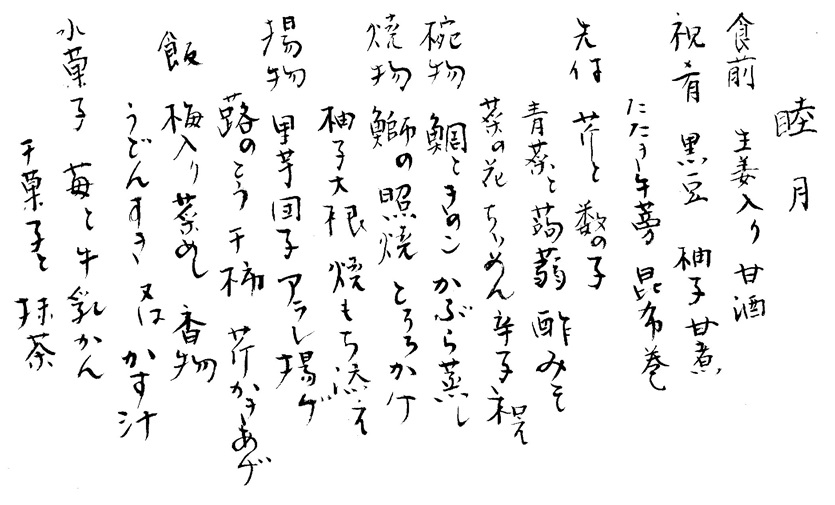 睦月
食前 生姜入り 甘酒
祝肴 黒豆 柚子甘煮
たたき牛蒡 昆布巻
先付 芹と数の子
青菜と蒟蒻 酢みそ
菜の花 ちりめん 辛子和え
椀物 鯛ときのこ かぶら蒸し
焼物 鰤の照焼 とろろかけ
柚子大根 焼もち添え
揚物 里芋団子 アラレ揚げ
蕗のとう 干柿 芹かきあげ
飯 梅入り菜めし 香物
うどんすき 又は かす汁
水菓子 苺と牛乳かん
干菓子と抹茶